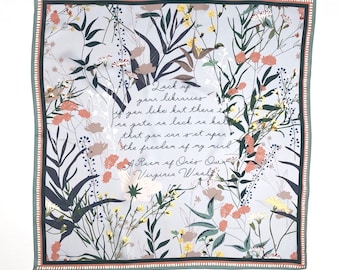 Lock up
your libraries
if you like but there
is no gate no lock no bolt
that you can set upon
the freedom of my mind
A Room of One's Own
Virginia Woolf